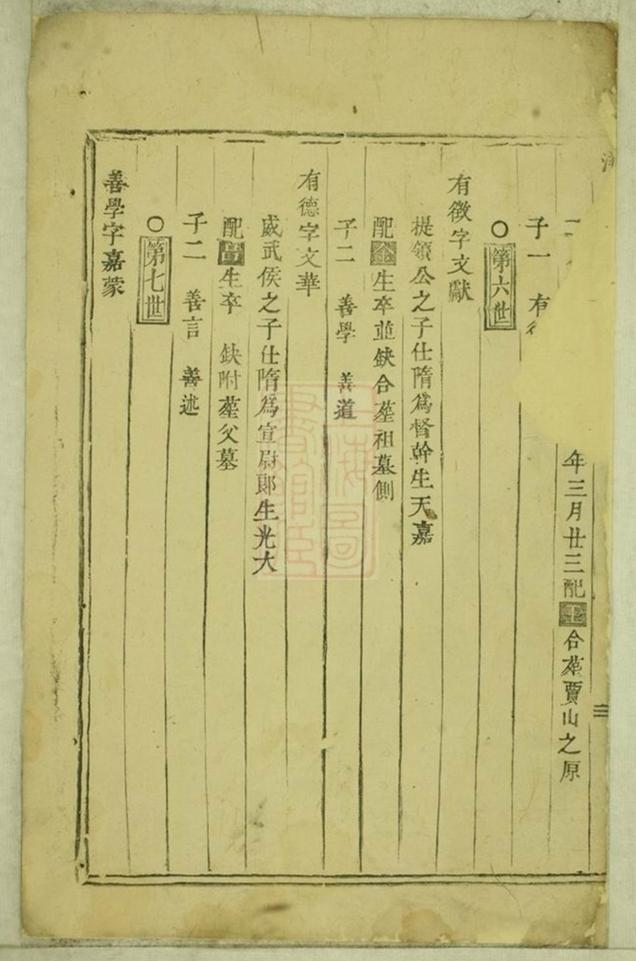 年三月廿三配王合塟賈山之原
子一 有
○第六世
有徵字文獻
提領公之子仕隋爲督幹生天嘉
配金生卒並缺合塟祖墓側
子二 善學 善道
有德字文華
威武侯之子仕隋爲宣尉郎生光大
配生卒 缺附塟父墓
子二 善言 善述
○第七世
善學字嘉蒙